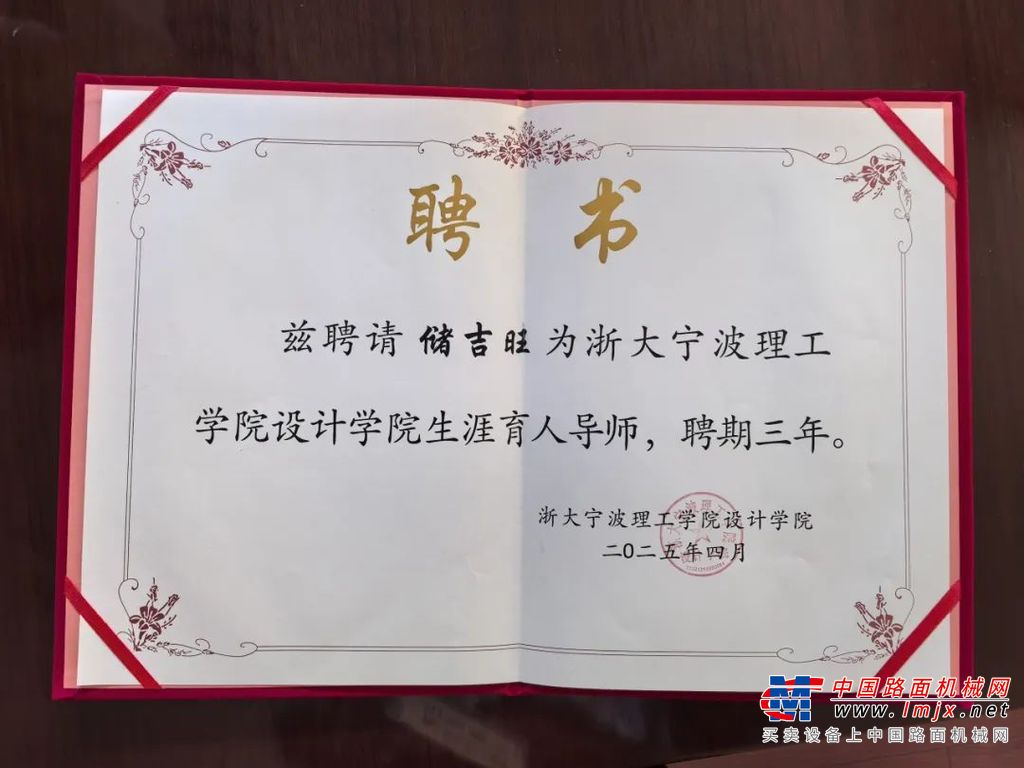 聘书
兹聘请 储吉旺 为浙大宁波理工
学院设计学院生涯育人导师，聘期三年。
浙大宁波理工学院设计学院
二〇二五年四月
中国路面机械网
www.lmjx.net
买卖设备上中国路面机械网